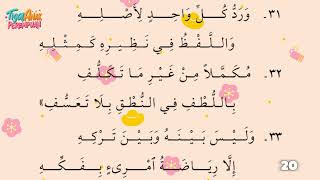 Tiga Abdul
PEREMPUAN
٣١. وَرَدُّ كُلِّ وَاحِدٍ لِأَصْلِهِ
وَاللَّفْظُ فِي نَظِيرِهِ كَمِثْلِهِ
٣٢. مُكَمَّلاً مِنْ غَيْرِ مَا تَكَلُّفِ
بِاللُّطْفِ فِي النُّطْقِ بِلَا تَعَسُّفِ
٣٣. وَلَيْسَ بَيْنَهُ وَبَيْنَ تَرْكِهِ
إِلَّا رِيَاضَةُ ٱمْرِئٍ بِفَكِّهِ
20